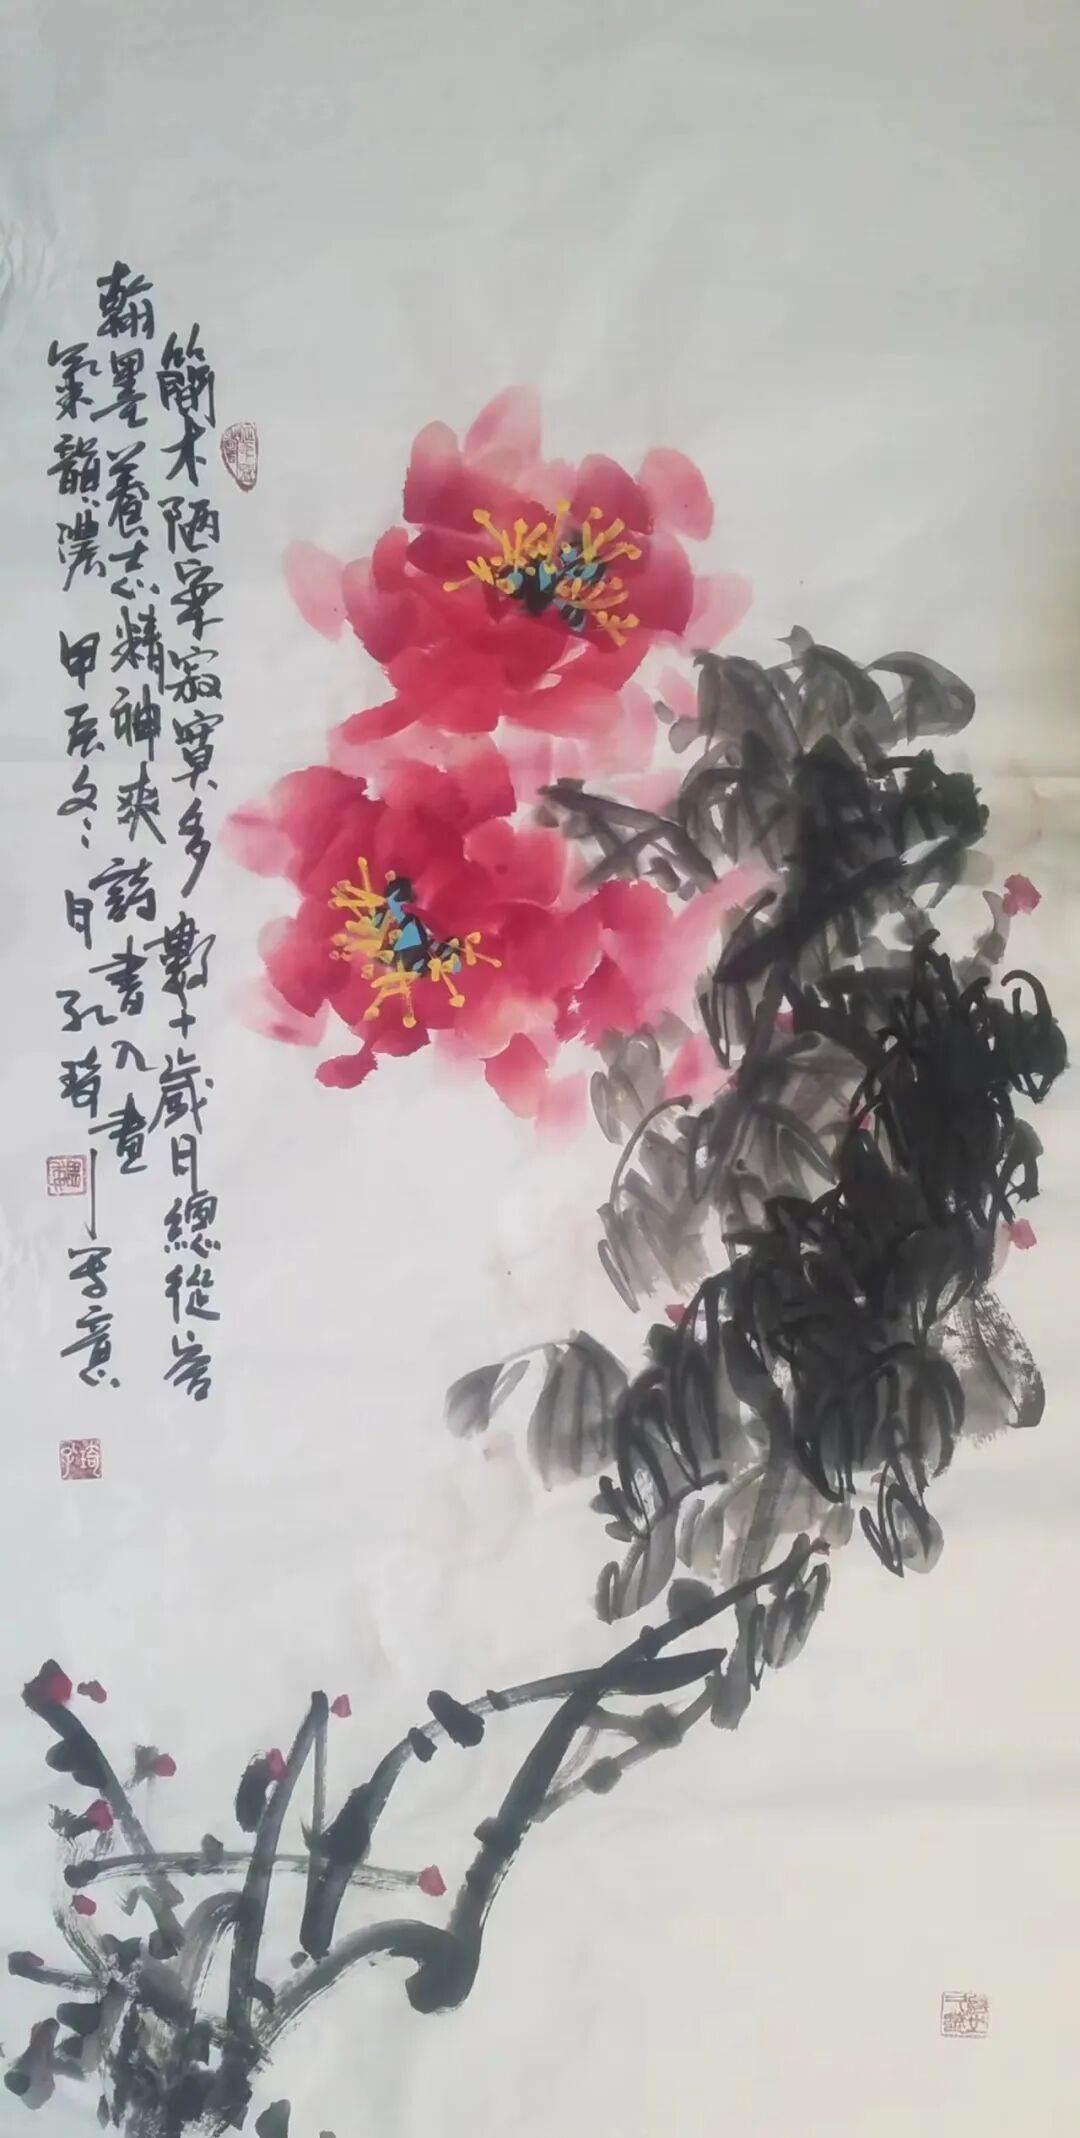 簡木陋室寂寞多數十歲日總從容
翰墨養志精神爽詩書入畫
氣韻濃 甲辰冬冬月孔琦寫意
孔琦